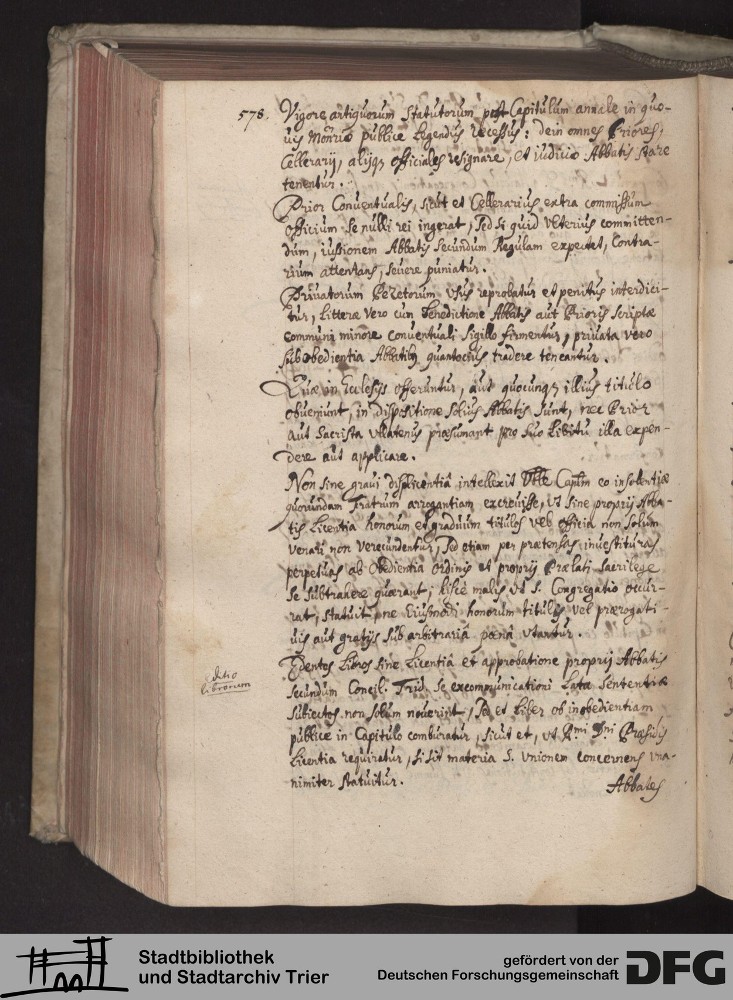 578. Vigore antiquorum Statutorum post Capitulum annale in quo-
uis Monrio publice legendus recessus: dein omnes Priores,
Cellerarij, alijq; officiales resignare, et iudicio Abbatis stare
tenentur.
Prior Conuentualis, sicut et Cellerarius extra commissum
officium se nulli rei ingerat, sed si quid vlterius committen-
dum, iussionem Abbatis secundum Regulam expectet, Contra-
rium attentans, seuere puniatur.
Priuatorum Pezetorum vsus reprobatur et penitus interdici-
tur, litteræ vero cum benedictione Abbatis aut Prioris scriptæ
communi minore conuentuali sigillo firmentur, priuata vero
sub obedientia Abbatibus quantocius tradere teneantur.
Quæ in Ecclesijs offeruntur, aut quocunq; illius titulo
obueniunt, in dispositione solius Abbatis sunt, nec Prior
aut Sacrista vllatenus præsumant pro suo libitu illa expen-
dere aut applicare.
Non sine graui displicentiâ intellexit Vble Captm eo insolentiæ
quorundam Fratrum arrogantiam excreuisse, vt sine proprij Abba-
tis licentia honorum et graduum titulos vel officia non solum
venari non verecundentur, sed etiam per prætensas inuestituras
perpetuas ab obedientia ordinis et proprij Prælati sacrilege
se subtrahere quærant; hisce malis vt S. Congregatio occur-
rat, statuit, ne eiusmodi honorum titulis vel prærogati-
uis aut gratijs sub arbitrariâ pœnâ vtantur.
editio
librorum
Edentes libros sine licentia et approbatione proprij Abbatis
secundum Concil. Trid. se excommunicationi latæ sententiæ
subiectos non solum nouerint, sed et liber ob inobedientiam
publice in Capitulo comburatur, sicut et, vt Rmi Dni Præsidis
licentia requiratur, si sit materia S. Vnionem concernens vna-
nimiter statuitur.
Abbates
Stadtbibliothek
und Stadtarchiv Trier
gefördert von der
Deutschen Forschungsgemeinschaft
DFG